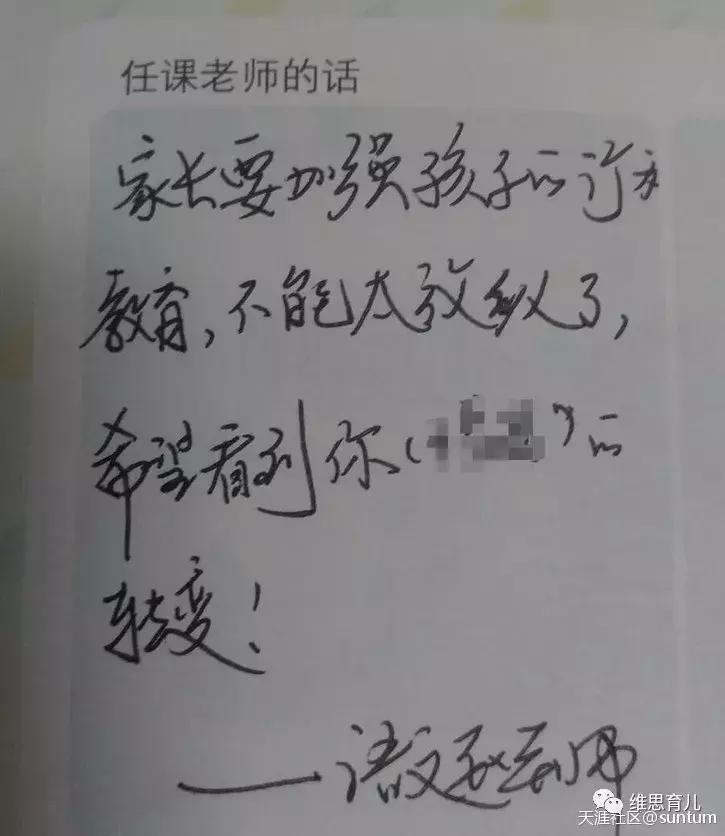 任课老师的话
家长要加强孩子的行为
教育,不能太放纵了,
希望看到你( )的
转变!
——语文赵老师
维思育儿
天涯社区@suntum